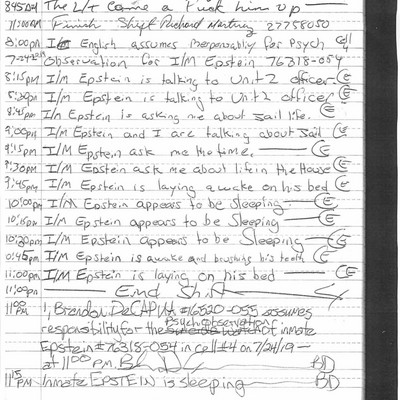 8:45AM The L/T came a Pick him up
11:00AM Finish Shift Richard Martinez 27758050
8:00pm I/M English assumes responsability for Psych Cell 4
7-24-2019 Observation for I/M Epstein 76318-054
8:15pm I/M Epstein is talking to Unit 2 officer CE
8:30pm I/M Epstein is talking to Unit 2 officer CE
8:45pm I/m Epstein is asking me about jail life. CE
9:00pm I/M Epstein and I are talking about jail CE
9:15pm I/M Epstein ask me the time. CE
9:30pm I/M Epstein ask me about life in the House CE
9:45pm I/M Epstein is laying awake on his bed CE
10:00pm I/M Epstein appears to be Sleeping CE
10:15pm I/M Epstein appears to be Sleeping CE
10:30pm I/M Epstein appears to be Sleeping CE
10:45pm I/M Epstein is awake and brushing his teeth CE
11:00pm I/M Epstein is laying on his bed CE
11:00pm End Shift
11:00 PM I, Brandon DeCAPUA #16520-055 assumes
responsibility for the Psych observation of inmate
Epstein #76318-054 in cell #4 on 7/24/19
at 11:00 P.M. BD
11:15 PM Inmate EPSTEIN is sleeping BD